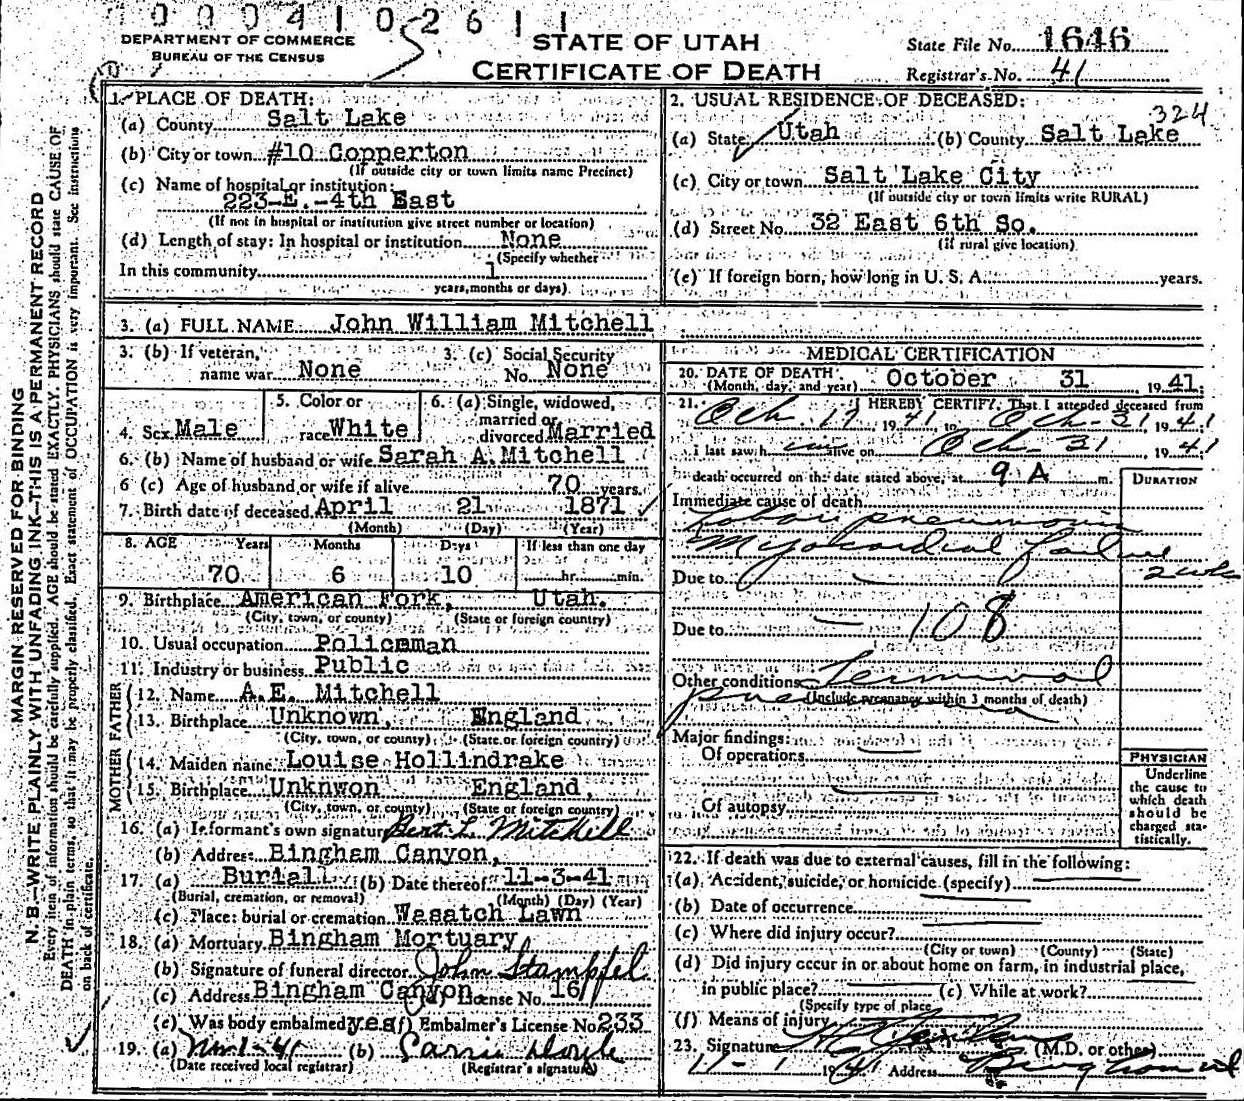 000410 2611
DEPARTMENT OF COMMERCE
BUREAU OF THE CENSUS
STATE OF UTAH
CERTIFICATE OF DEATH
State File No. 1646
Registrar's No. 41
1. PLACE OF DEATH:
(a) County Salt Lake
(b) City or town #10 Copperton
(If outside city or town limits name Precinct)
(c) Name of hospital or institution:
223-E.-4th East
(If not in hospital or institution give street number or location)
(d) Length of stay: In hospital or institution None
(Specify whether
In this community 1
years, months or days)
2. USUAL RESIDENCE OF DECEASED:
324
(a) State Utah (b) County Salt Lake
(c) City or town Salt Lake City
(If outside city or town limits write RURAL)
(d) Street No 32 East 6th So.
(If rural give location)
(e) If foreign born, how long in U. S. A. years.
3. (a) FULL NAME John William Mitchell
3. (b) If veteran, name war None
3. (c) Social Security No. None
4. Sex Male
5. Color or race White
6. (a) Single, widowed, married or divorced Married
6. (b) Name of husband or wife Sarah A. Mitchell
6 (c) Age of husband or wife if alive 70 years.
7. Birth date of deceased April 21 1871
(Month) (Day) (Year)
8. AGE Years Months Days If less than one day
70 6 10 hr. min.
9. Birthplace American Fork, Utah.
(City, town, or county) (State or foreign country)
10. Usual occupation Policeman
11. Industry or business Public
FATHER
12. Name A.E. Mitchell
13. Birthplace Unknown, England
(City, town, or county) (State or foreign country)
MOTHER
14. Maiden name Louise Hollindrake
15. Birthplace Unknwon England,
(City, town, or county) (State or foreign country)
16. (a) Informant's own signature Bert L. Mitchell
(b) Address Bingham Canyon,
17. (a) Burial (b) Date thereof 11-3-41
(Burial, cremation, or removal) (Month) (Day) (Year)
(c) Place: burial or cremation Wasatch Lawn
18. (a) Mortuary Bingham Mortuary
(b) Signature of funeral director John Stampfel
(c) Address Bingham Canyon (d) License No. 16
(e) Was body embalmed yes (f) Embalmer's License No. 233
19. (a) Nov 1-41 (b) Carrie Doyle
(Date received local registrar) (Registrar's signature)
MEDICAL CERTIFICATION
20. DATE OF DEATH October 31 1941
(Month, day, and year)
21. I HEREBY CERTIFY That I attended deceased from
Oct 17 1941 to Oct-31 1941
I last saw him alive on Oct 31 1941
death occurred on the date stated above, at 9 A m.
DURATION
Immediate cause of death
Lobar pneumonia
Myocardial failure
Due to 2 wks
Due to 108
Other conditions Terminal
(Include pregnancy within 3 months of death)
Major findings:
Of operations
Of autopsy
PHYSICIAN
Underline
the cause to
which death
should be
charged sta-
tistically.
22. If death was due to external causes, fill in the following:
(a) Accident, suicide, or homicide (specify)
(b) Date of occurrence
(c) Where did injury occur?
(City or town) (County) (State)
(d) Did injury occur in or about home on farm, in industrial place,
in public place? (e) While at work?
(Specify type of place
(f) Means of injury
23. Signature (M.D. or other)
11-1 1941 Address Bingham
MARGIN RESERVED FOR BINDING
N. B.—WRITE PLAINLY WITH UNFADING INK—THIS IS A PERMANENT RECORD
Every item of information should be carefully supplied. AGE should be stated EXACTLY. PHYSICIANS should state CAUSE OF
DEATH in plain terms, so that it may be properly classified. Exact statement of OCCUPATION is very important. See instructions
on back of certificate.